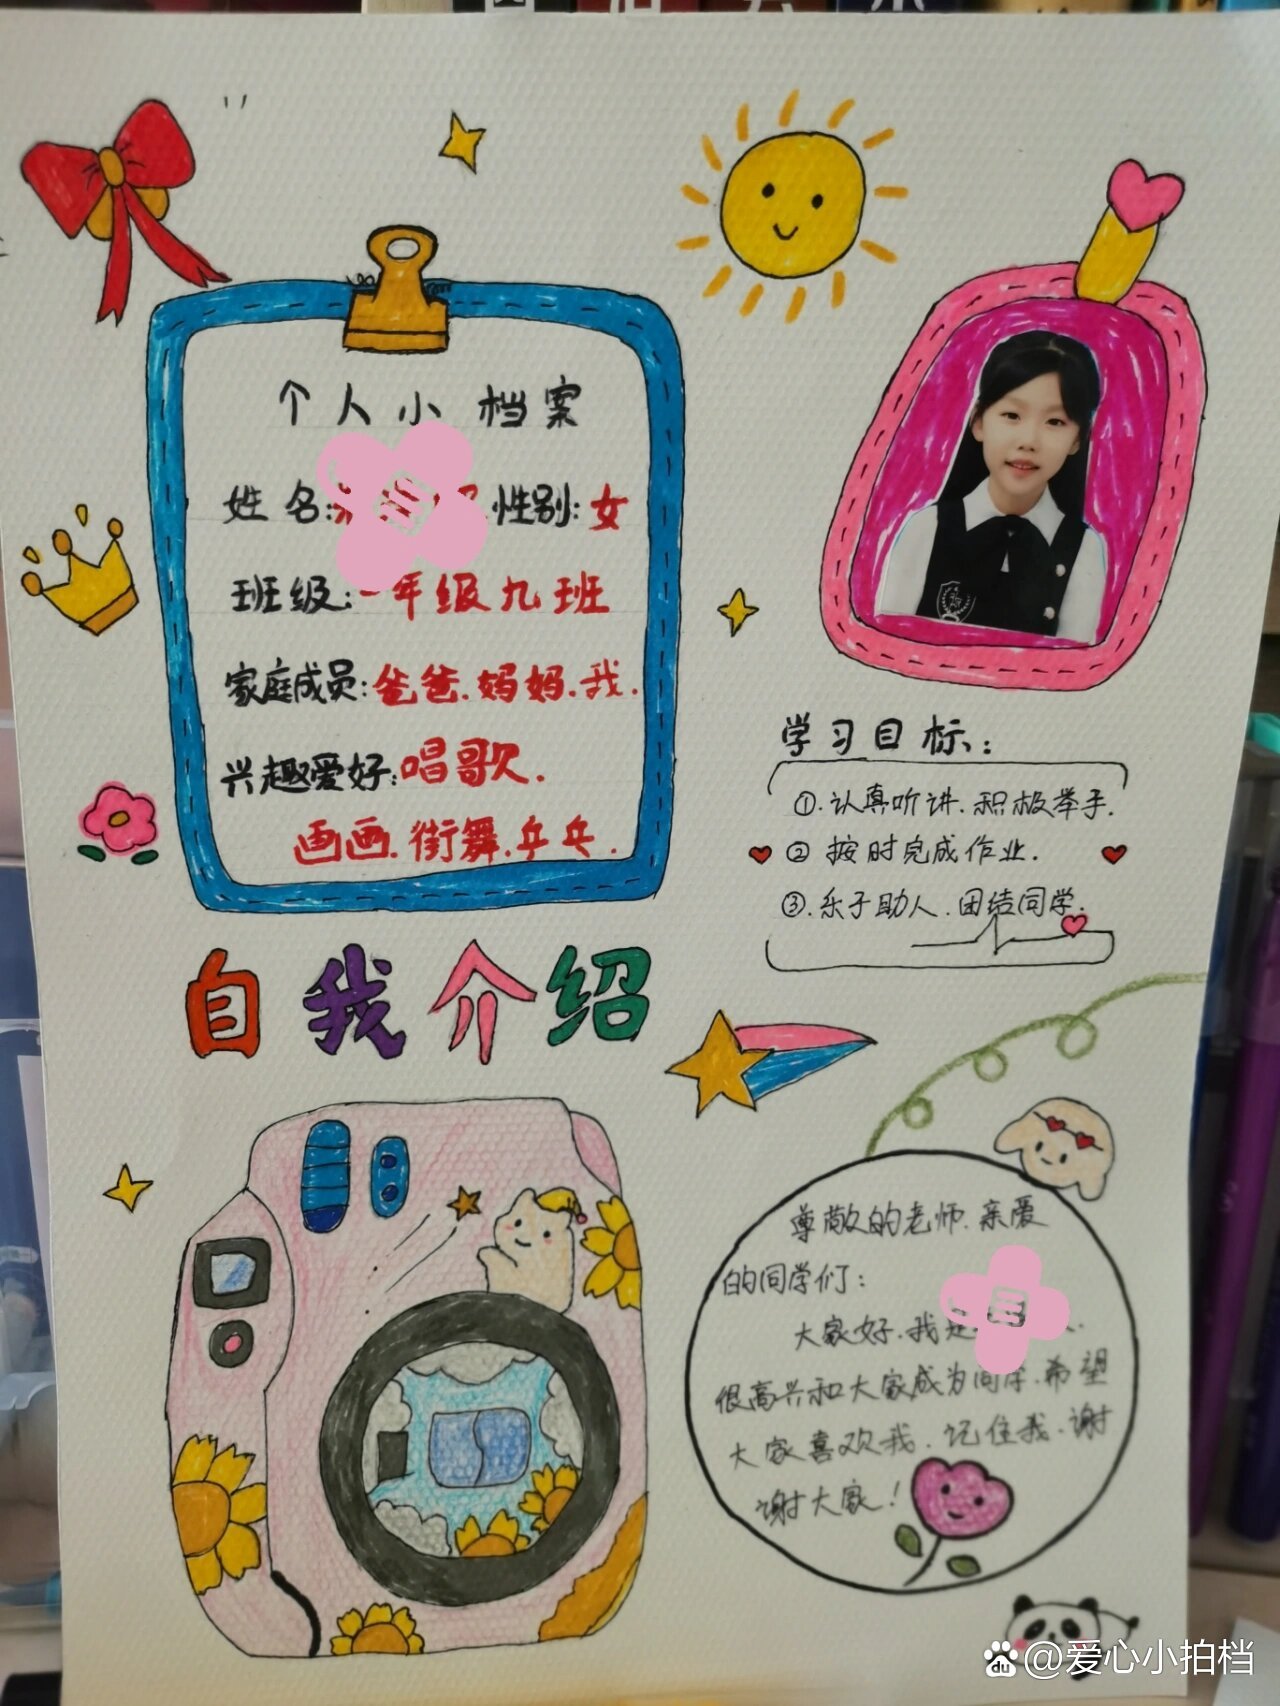 个人小档案
姓名: 性别:女
班级:一年级九班
家庭成员:爸爸.妈妈.我.
兴趣爱好:唱歌.
画画.街舞.乒乓.
学习目标:
①.认真听讲.积极举手.
② 按时完成作业.
③.乐于助人.团结同学.
自我介绍
尊敬的老师.亲爱
的同学们:
大家好.我是
很高兴和大家成为同学.希望
大家喜欢我.记住我.谢
谢大家!
du @爱心小拍档